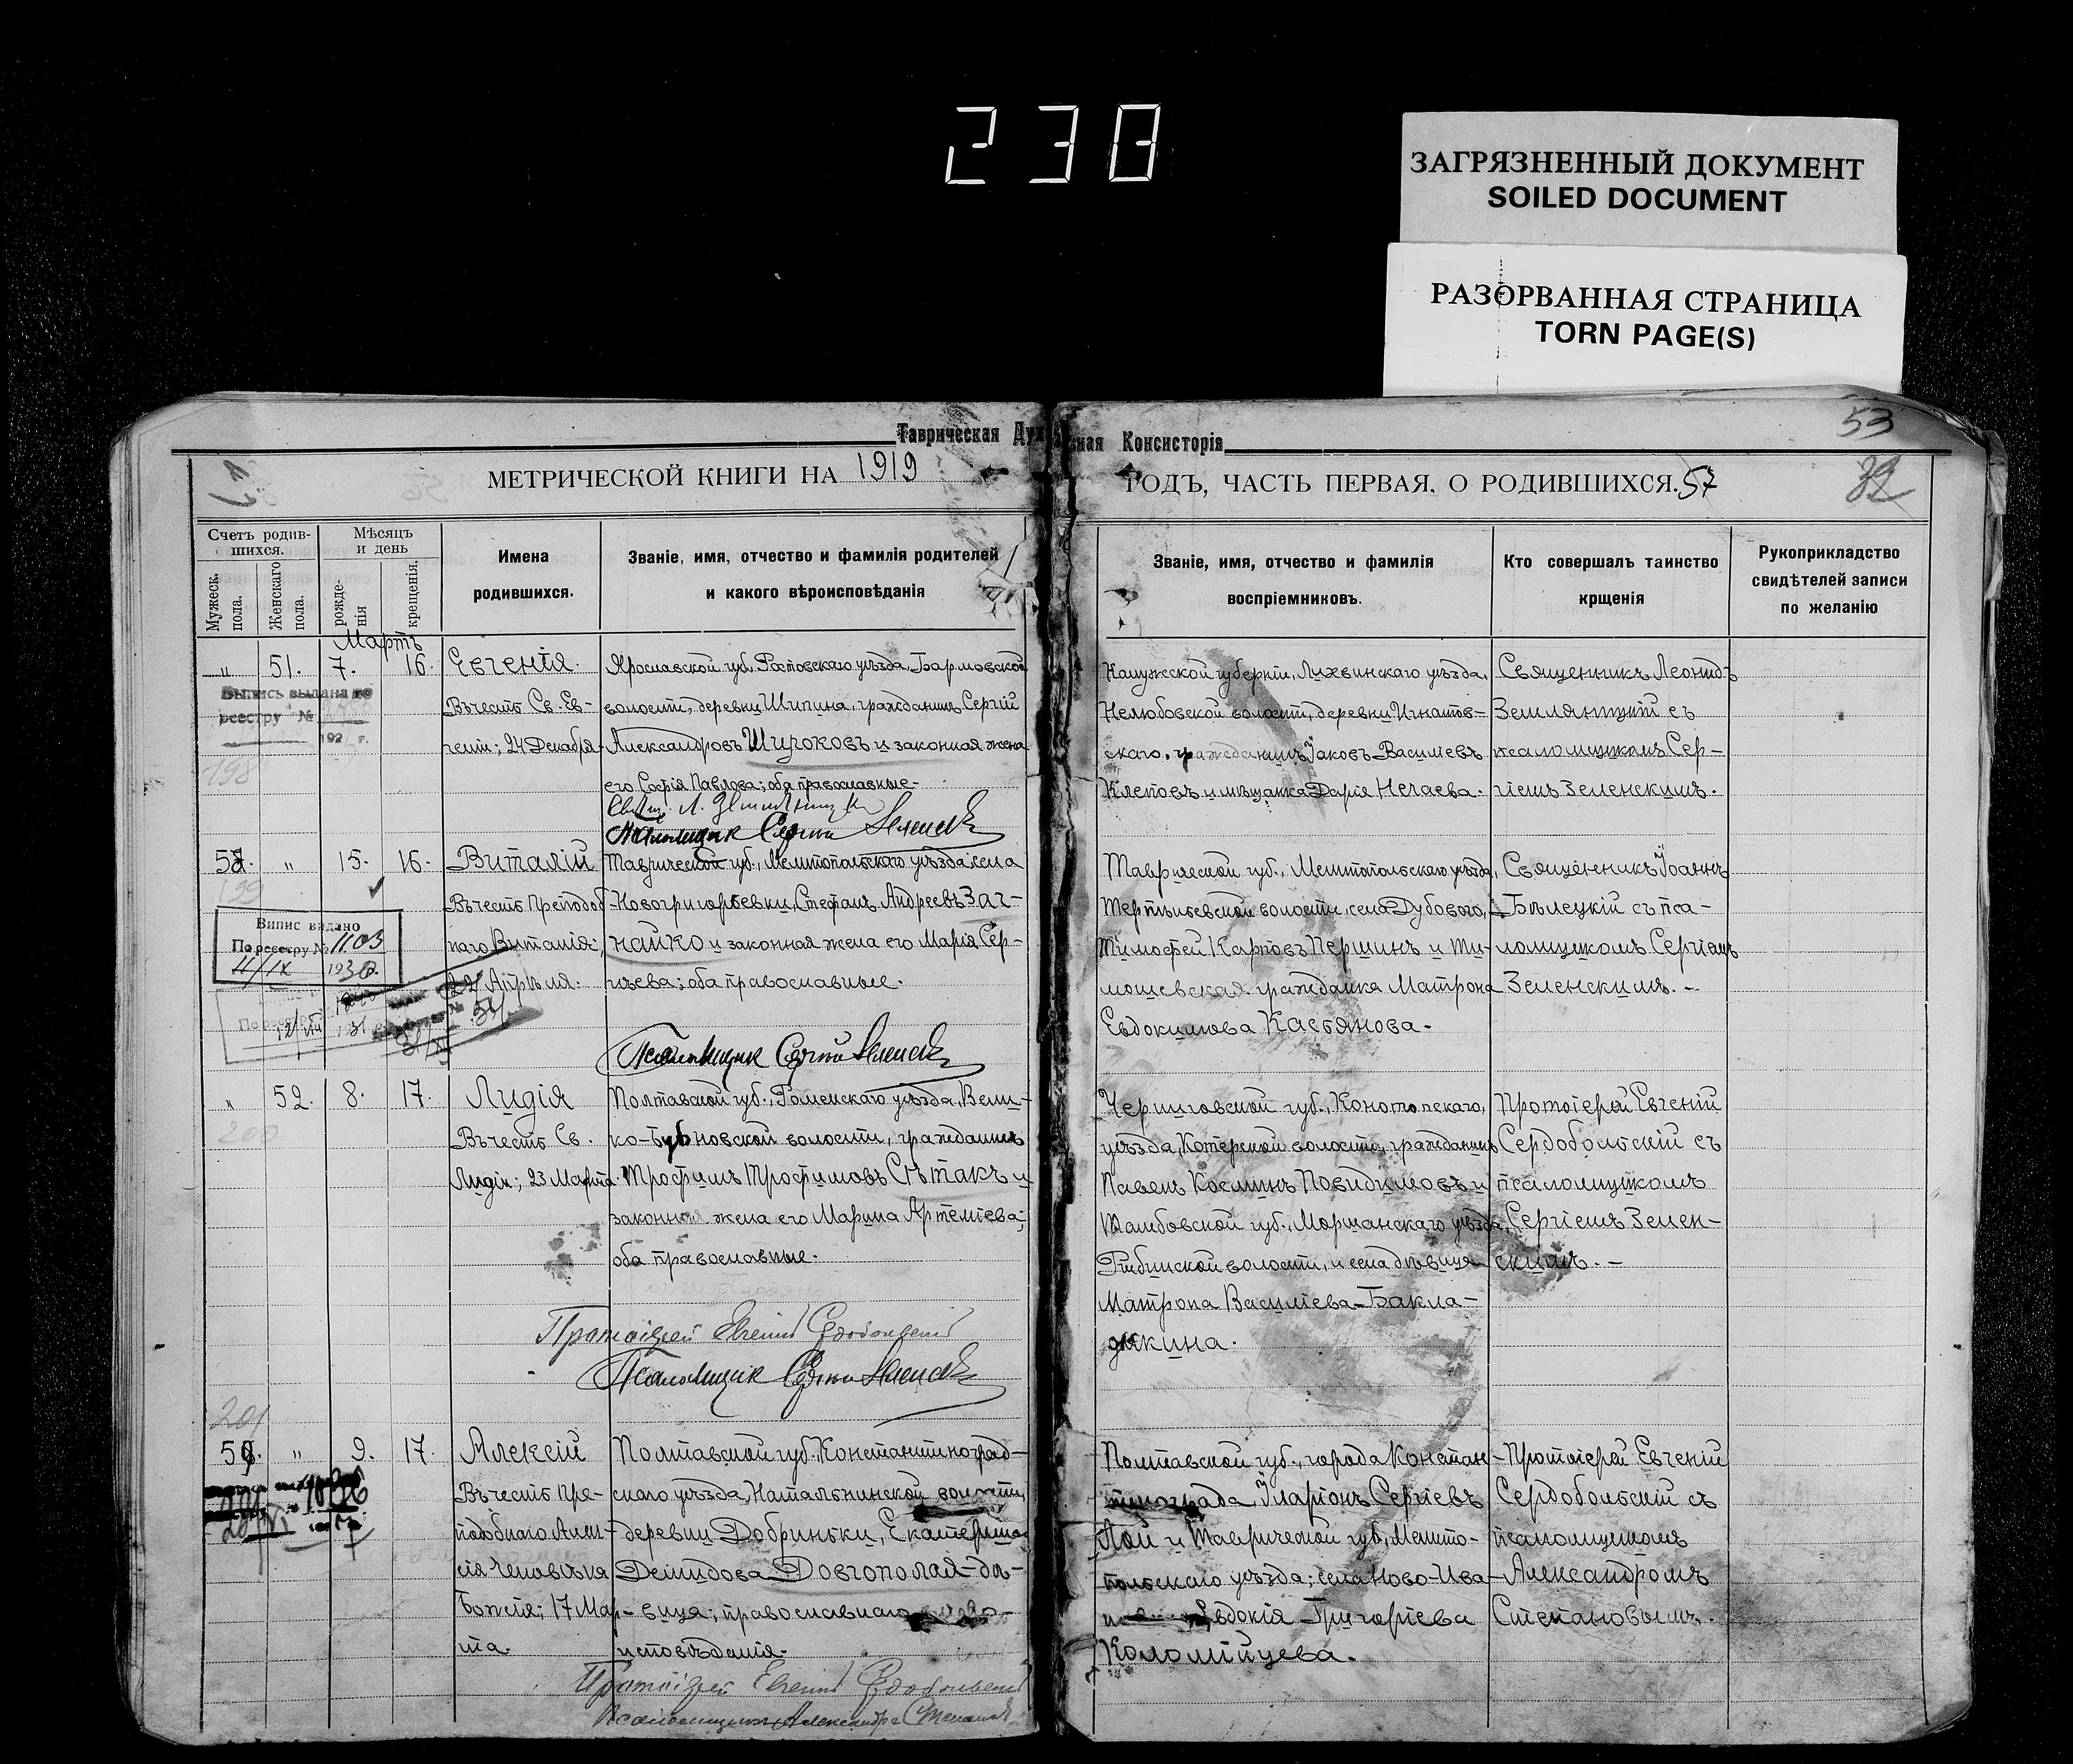 230
ЗАГРЯЗНЕННЫЙ ДОКУМЕНТ
SOILED DOCUMENT
РАЗОРВАННАЯ СТРАНИЦА
TORN PAGE(S)
Таврическая Дух
ная Консисторія
53
МЕТРИЧЕСКОЙ КНИГИ НА 1919
ГОДЪ, ЧАСТЬ ПЕРВАЯ, О РОДИВШИХСЯ. 57
32
Счетъ родив-
шихся.
Мужеск.
пола.
Женскаго
пола.
Мѣсяцъ
и день
рожде-
нія
крещенія.
Имена
родившихся.
Званіе, имя, отчество и фамилія родителей
и какого вѣроисповѣданія
Званіе, имя, отчество и фамилія
воспріемниковъ.
Кто совершалъ таинство
крщенія
Рукоприкладство
свидѣтелей записи
по желанію
Мартъ
„ 51. 7. 16.
Выпись выдана по
реестру №
192 г.
198
Евгенія.
Въ честь Св. Ев-
геніи; 24 Декабря
Ярославской губ. Ростовскаго уѣзда,
волости, деревни Шипина, гражданинъ Сергій
Александровъ Широковъ и законная жена
его Софія Павлова; оба православные.
Псаломщик Сергій Зеленскій
Калужской губерніи, Лихвинскаго уѣзда,
Нелюбовской волости, деревни Игнатов-
скаго, гражданинъ Іаковъ Василіевъ
Клеповъ и мѣщанка Дарія Нечаева.
Священникъ Леонидъ
Земляницкій съ
псаломщикомъ Сер-
гіемъ Зеленскимъ.
„ 15. 16.
199
Випис видано
По реестру № 1103
11/IX 1930.
Виталій
Въ честь Преподоб-
наго Виталія;
22 Апрѣля.
Таврической губ., Мелитопольскаго уѣзда села
Новогригорьевки, Стефанъ Андреевъ Заг-
найко и законная жена его Марія Сер-
гѣева; оба православные.
Псаломщик Сергій Зеленскій
Таврической губ., Мелитопольскаго уѣзда,
волости, села Дубового,
Тимофей Карповъ Першинъ и Ти-
мошевская гражданка Матрона
Евдокимова Касьянова.
Священникъ Іоаннъ
Бѣлецкій съ пса-
ломщикомъ Сергіемъ
Зеленскимъ. –
„ 52. 8. 17.
200
Лидія
Въ честь Св.
Лидіи; 23 Марта.
Полтавской губ., Роменскаго уѣзда, Вели-
ко-Бубновской волости, гражданинъ
Трофимъ Трофимовъ Сѣтакъ и
законная жена его Марина Артеміева;
оба православные.
Протоіерей Евгеній Сердобольскій
Псаломщик Сергій Зеленскій
Черниговской губ., Конотопскаго,
уѣзда, волости, гражданинъ
Павелъ Косминъ и
Тамбовской губ., Моршанскаго уѣзда,
волости, и села дѣвица
Матрона Василіева Бакла-
Протоіерей Евгеній
Сердобольскій съ
псаломщикомъ
Сергіемъ Зелен-
скимъ. –
201
„ 9. 17.
Алексій
Въ честь Пре-
подобнаго Алек-
сія Человѣка
Божія; 17 Мар-
та.
Полтавской губ., Константиноград-
скаго уѣзда, Натальинской волости,
деревни Добриньки, Екатерина
Демидова Довгополая дѣ-
вица; православнаго
исповѣданія.
Протоіерей Евгеній Сердобольскій
Псаломщикъ Александръ Степановъ
Полтавской губ., города Констан-
тинограда, Иларіонъ Сергіевъ
и Таврической губ., Мелито-
польскаго уѣзда; села Ново-Ива-
Евдокія Григоріева
Коломійцева.
Протоіерей Евгеній
Сердобольскій съ
псаломщикомъ
Александромъ
Степановымъ.